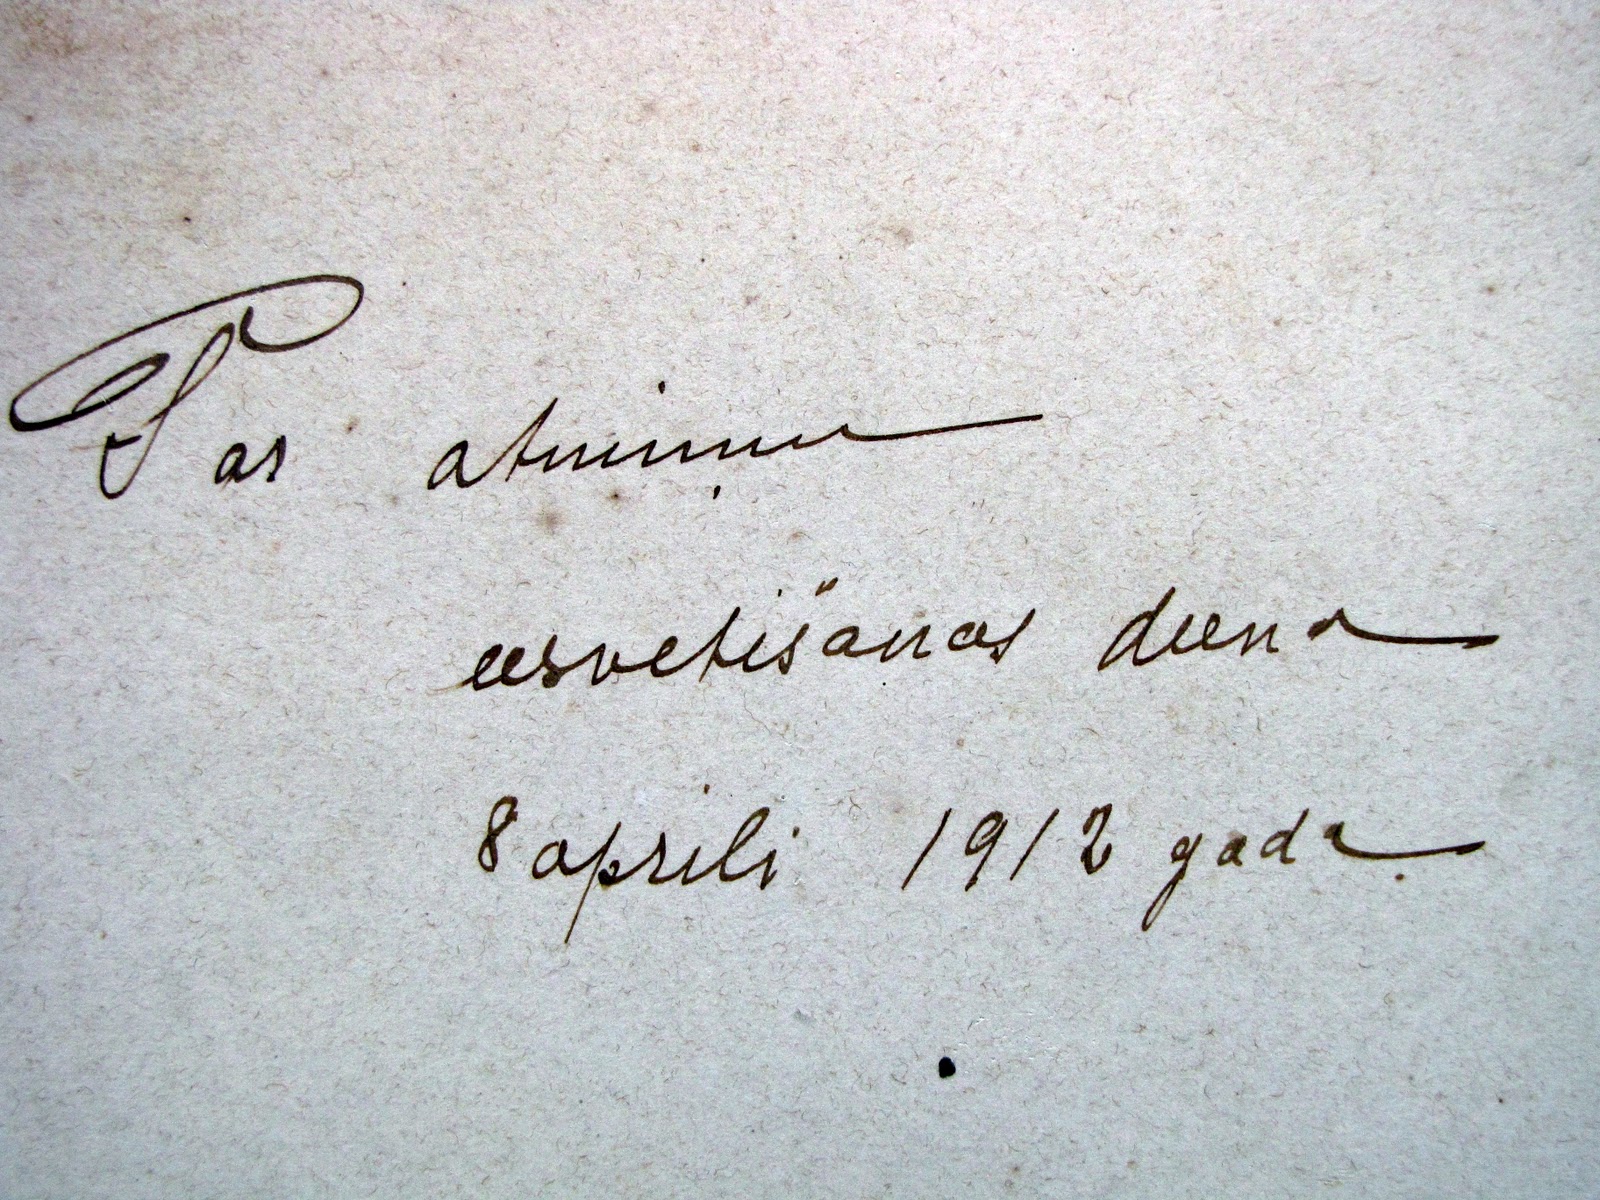 Par atmiņu
eesvetišanas deena
8 aprili 1912 gada